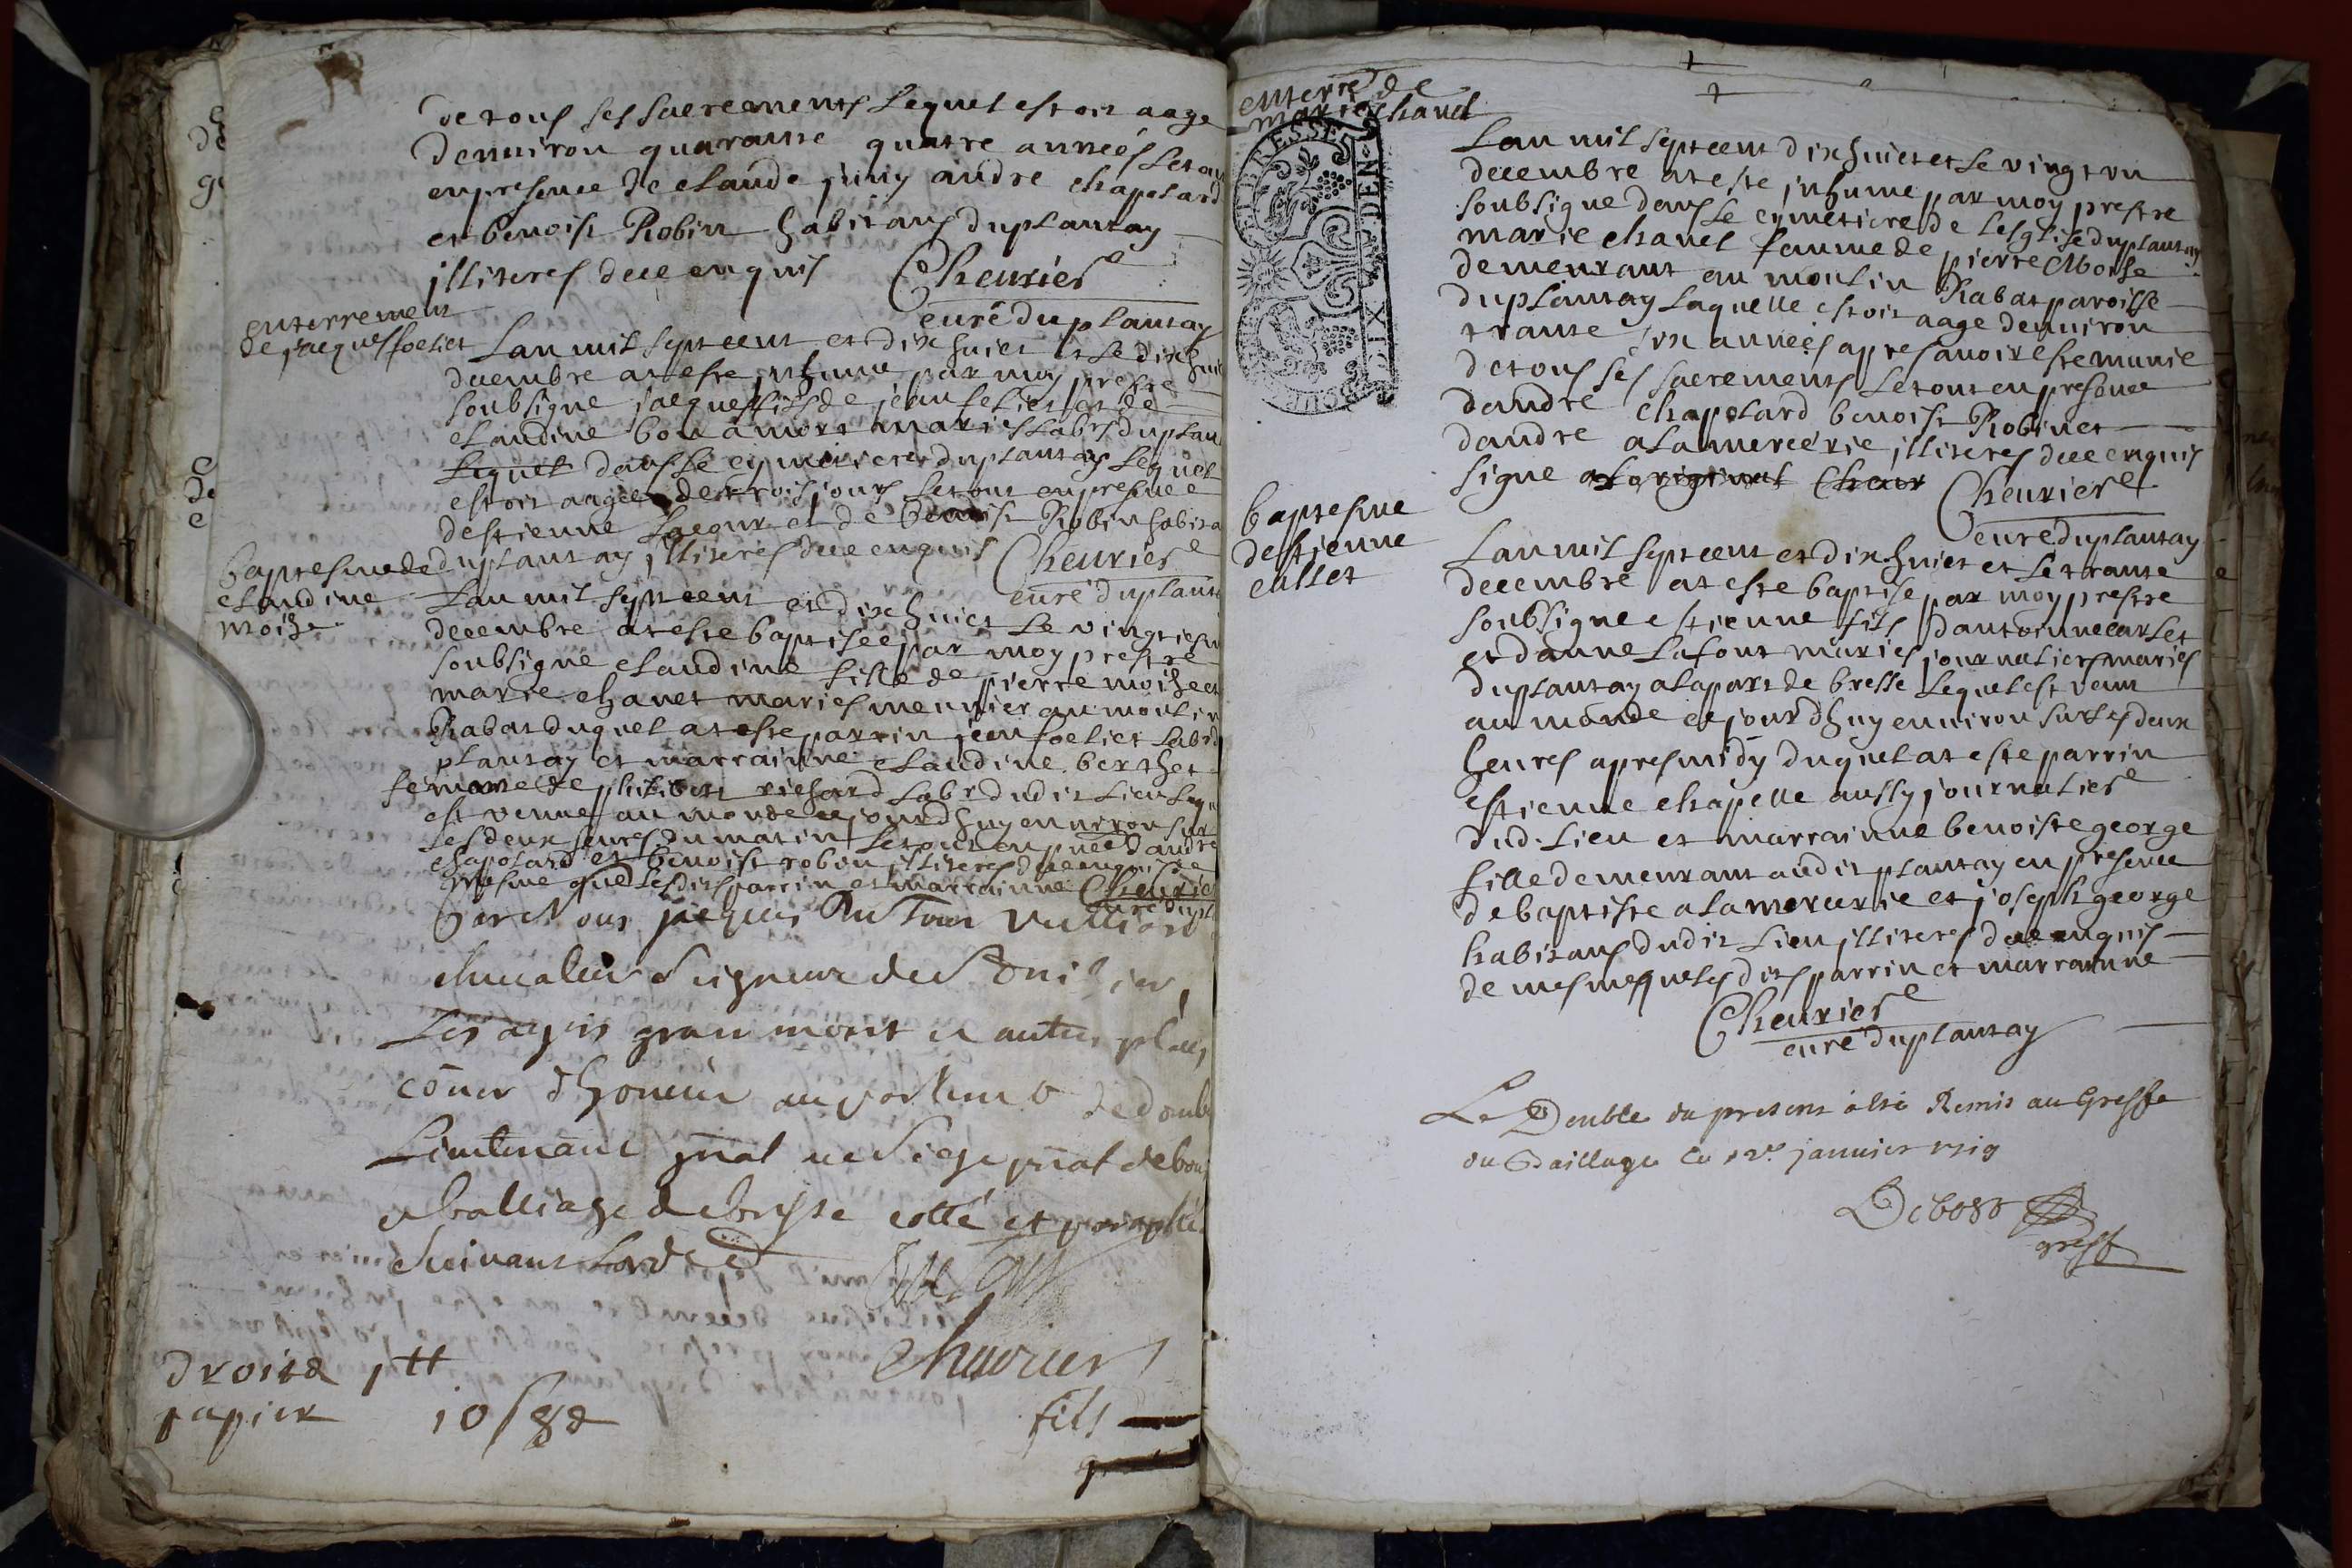 de tous ses sacrements lequel estoit aage
denuiron quarante quatre années le tou
en presence de claude juny andré chapolard
et benoist Robin habitans du plantay
illiteres de ce enquis Cheurier
curé du plantay
enterrement
de jacques foelier
Lan mil sept cent et dix huict et le dix huit
decembre at este inhume par moy prestre
soubsigne jacques fils de jean felier et de
claudine bon amort maries labrs du plan
lequel dans le cymetiere du plantay lequel
estoit aagee de trois jours le tout en presence
destienne et de benoist Robin habita
du plantay illiteres de ce enquis Cheurier
curé du planta
baptesme de
claudine
moise
Lan mil sept cent et dix huict le vingtiesm
decembre at este baptisee par moy prestre
soubsigné claudine fille de pierre moise et
marie chanet maries meunier au moulin
Rabat duquel at este parrin jean foelier labr d
plantay et marrainne claudine berthet
femme de philibert richard labr dudit lieu laqu
est venue au monde ce jourdhuy enuiron sur
les deux heures du matin le tout en pnce dandré
chapolard et benoist robin illiteres de ce enquis de
mesme que lesdits parrin et marrainne Cheurier
curé du pl
Par Nous jacques
cheualier Seigneur de
Les ayes granmont et autres places
coner dhoneur au parlement de domb
Lieutenant gnal au Siege pnal de bou
et balliage de bresse cotté et paraphé
Suiuant lord
Cheurier
fils
droits 1tt
papier 10s 8d
enterre de
marie chanet
Lan mil sept cent dix huict et le vingt un
decembre at este inhume par moy prestre
soubsigne dans le cymetiere de lesglise du plantay
marie chanet famme de pierre Moise
demeurant au moulin Rabat paroisse
du plantay laquelle estoit aage denuiron
trante six années apres auoir este munie
de tous ses sacrements le tout en presence
dandré chapolard benoist Robinet
dandré alamercerie illiteres de ce enquis
signe a loriginal Cheur Cheurier
curé du plantay
baptesme
destienne
callet
Lan mil sept cent et dix huict et le trante
decembre at este baptise par moy prestre
soubsigne estienne fils dantoinne carlet
et danne lafont maries journaliers maries
du plantay a la part de bresse lequel est venu
au monde ce jourdhuy enuiron sur les deux
heures apres midy duquel at este parrin
estienne chapelle aussy journalier
dud. lieu et marrainne benoiste george
fille demeurant audit plantay en presence
de baptiste alamercerie et joseph george
habitans dudit lieu illiteres de ce enquis
de mesme que lesdits parrin et marrainne
Cheurier
curé du plantay
Le Double du present a esté Remis au Greffe
du Baillage le 12e januier 1719
Debost
greff